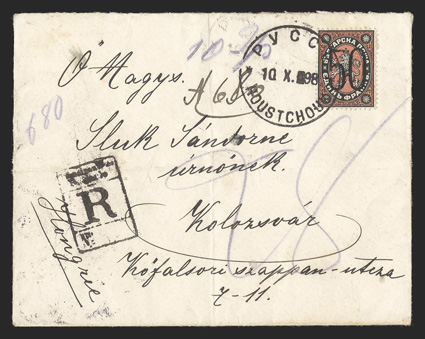 РУСС
10.X.98
ROUSTCHOUK
50
680
Ő Nagys.
Sluk Sándorné
úrnőnek.
R
Kolozsvár
Hongrie
Kőfalsori szappan-utcza
7-11.